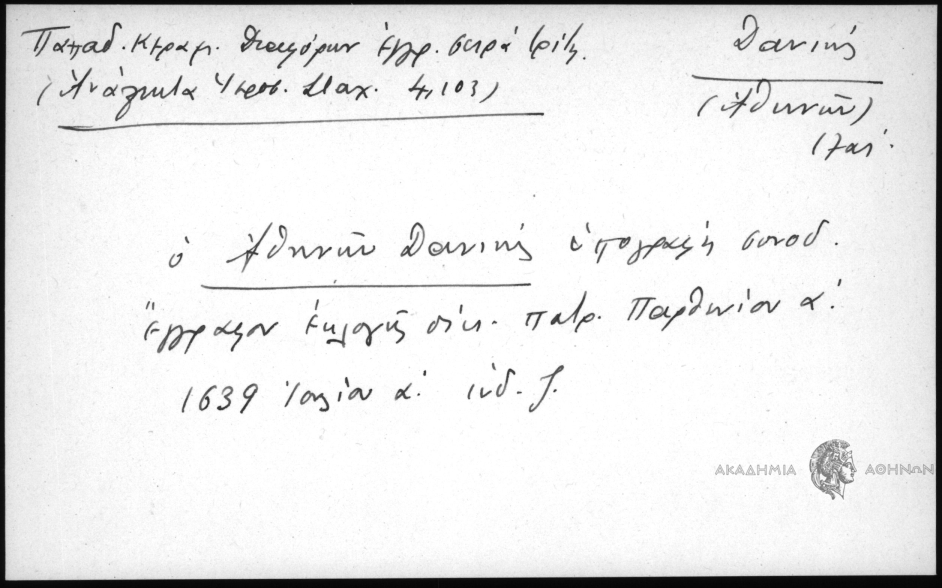 Παπαδ. Κεραμ. Διαφόρων ἐγγρ. σειρά τρίτη
(Ἀνάλεκτα Ἱεροσ. Σταχ. 4, 103)
Δανιήλ
(Ἀθηνῶν)
17ου αἰ.
ὁ Ἀθηνῶν Δανιήλ ὑπογραφή συνοδ.
ἔγγραφον ἐκλογῆς οἰκ. πατρ. Παρθενίου α΄.
1639 Ἰουλίου α΄. ἰνδ. ζ.
ΑΚΑΔΗΜΙΑ ΑΘΗΝΩΝ